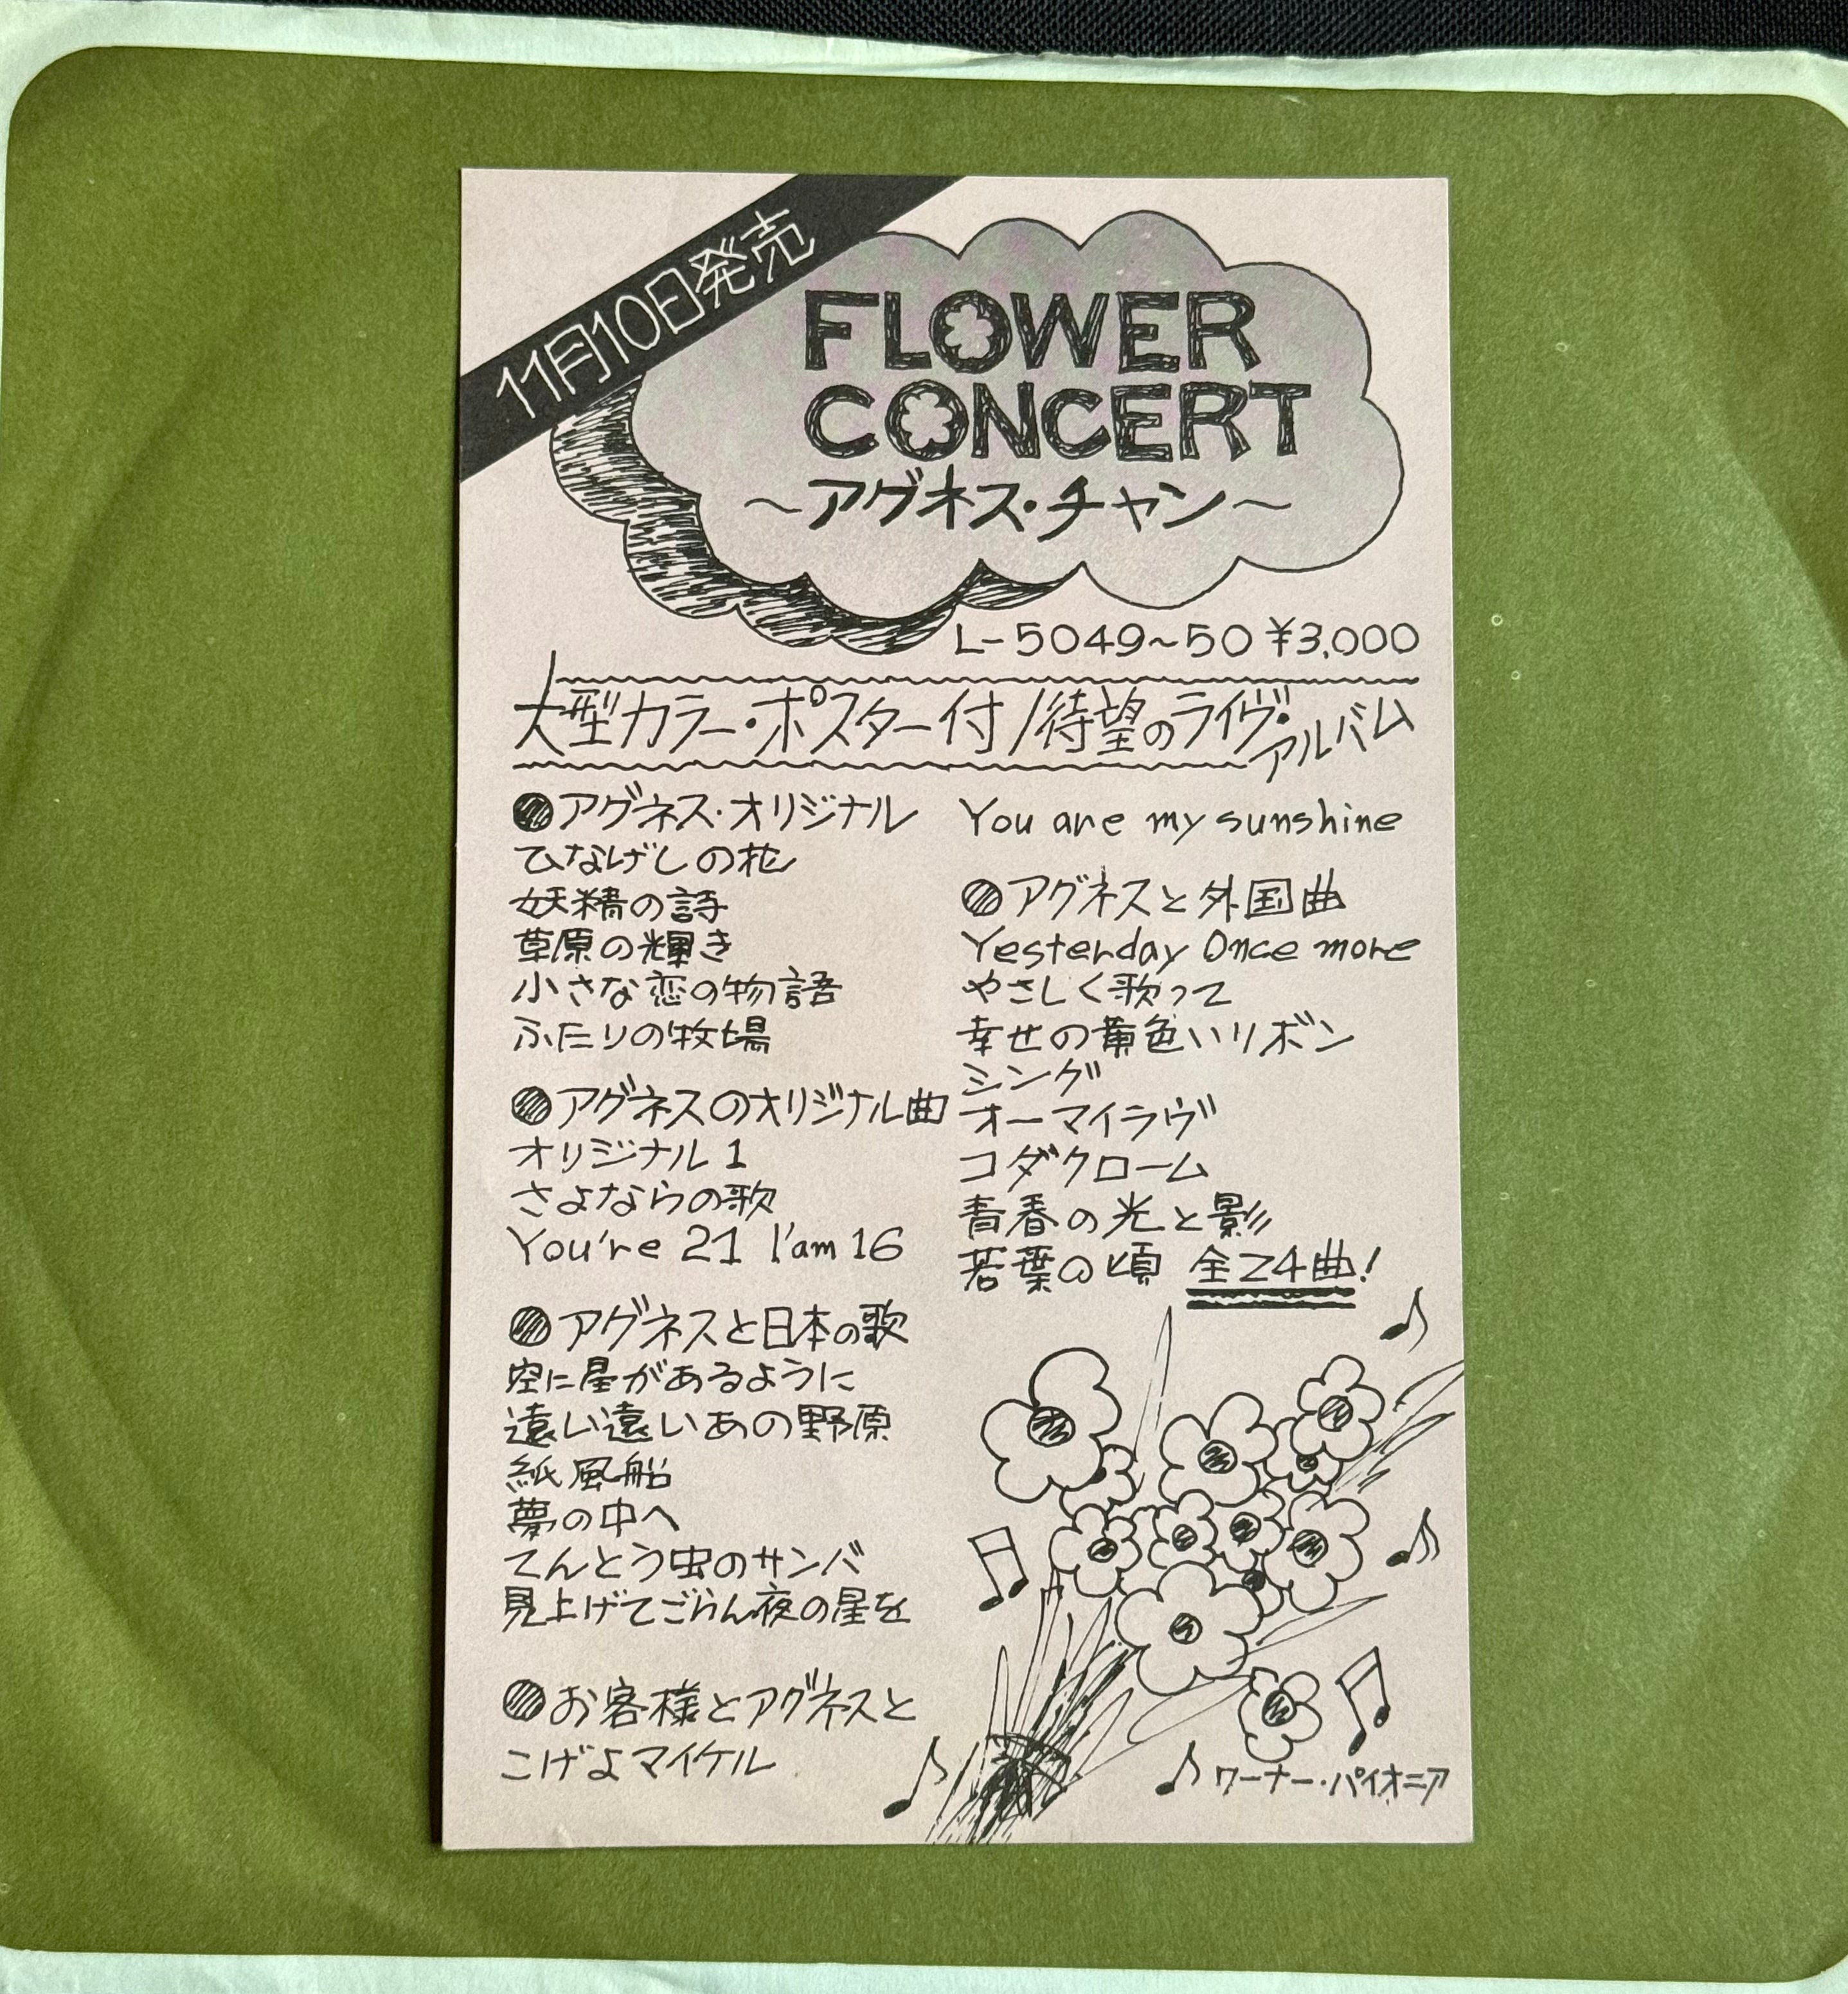 11月10日発売
FLOWER
CONCERT
~アグネス・チャン~
L-5049~50 ¥3,000
大型カラー・ポスター付/待望のライヴ・
アルバム
アグネス・オリジナル
ひなげしの花
妖精の詩
草原の輝き
小さな恋の物語
ふたりの牧場
アグネスのオリジナル曲
オリジナル1
さよならの歌
You're 21 I'am 16
アグネスと日本の歌
空に星があるように
遠い遠いあの野原
紙風船
夢の中へ
てんとう虫のサンバ
見上げてごらん夜の星を
お客様とアグネスと
こげよマイケル
You are my sunshine
アグネスと外国曲
Yesterday Once more
やさしく歌って
幸せの黄色いリボン
シング
オーマイラヴ
コダクローム
青春の光と影
若葉の頃 全24曲!
ワーナー・パイオニア